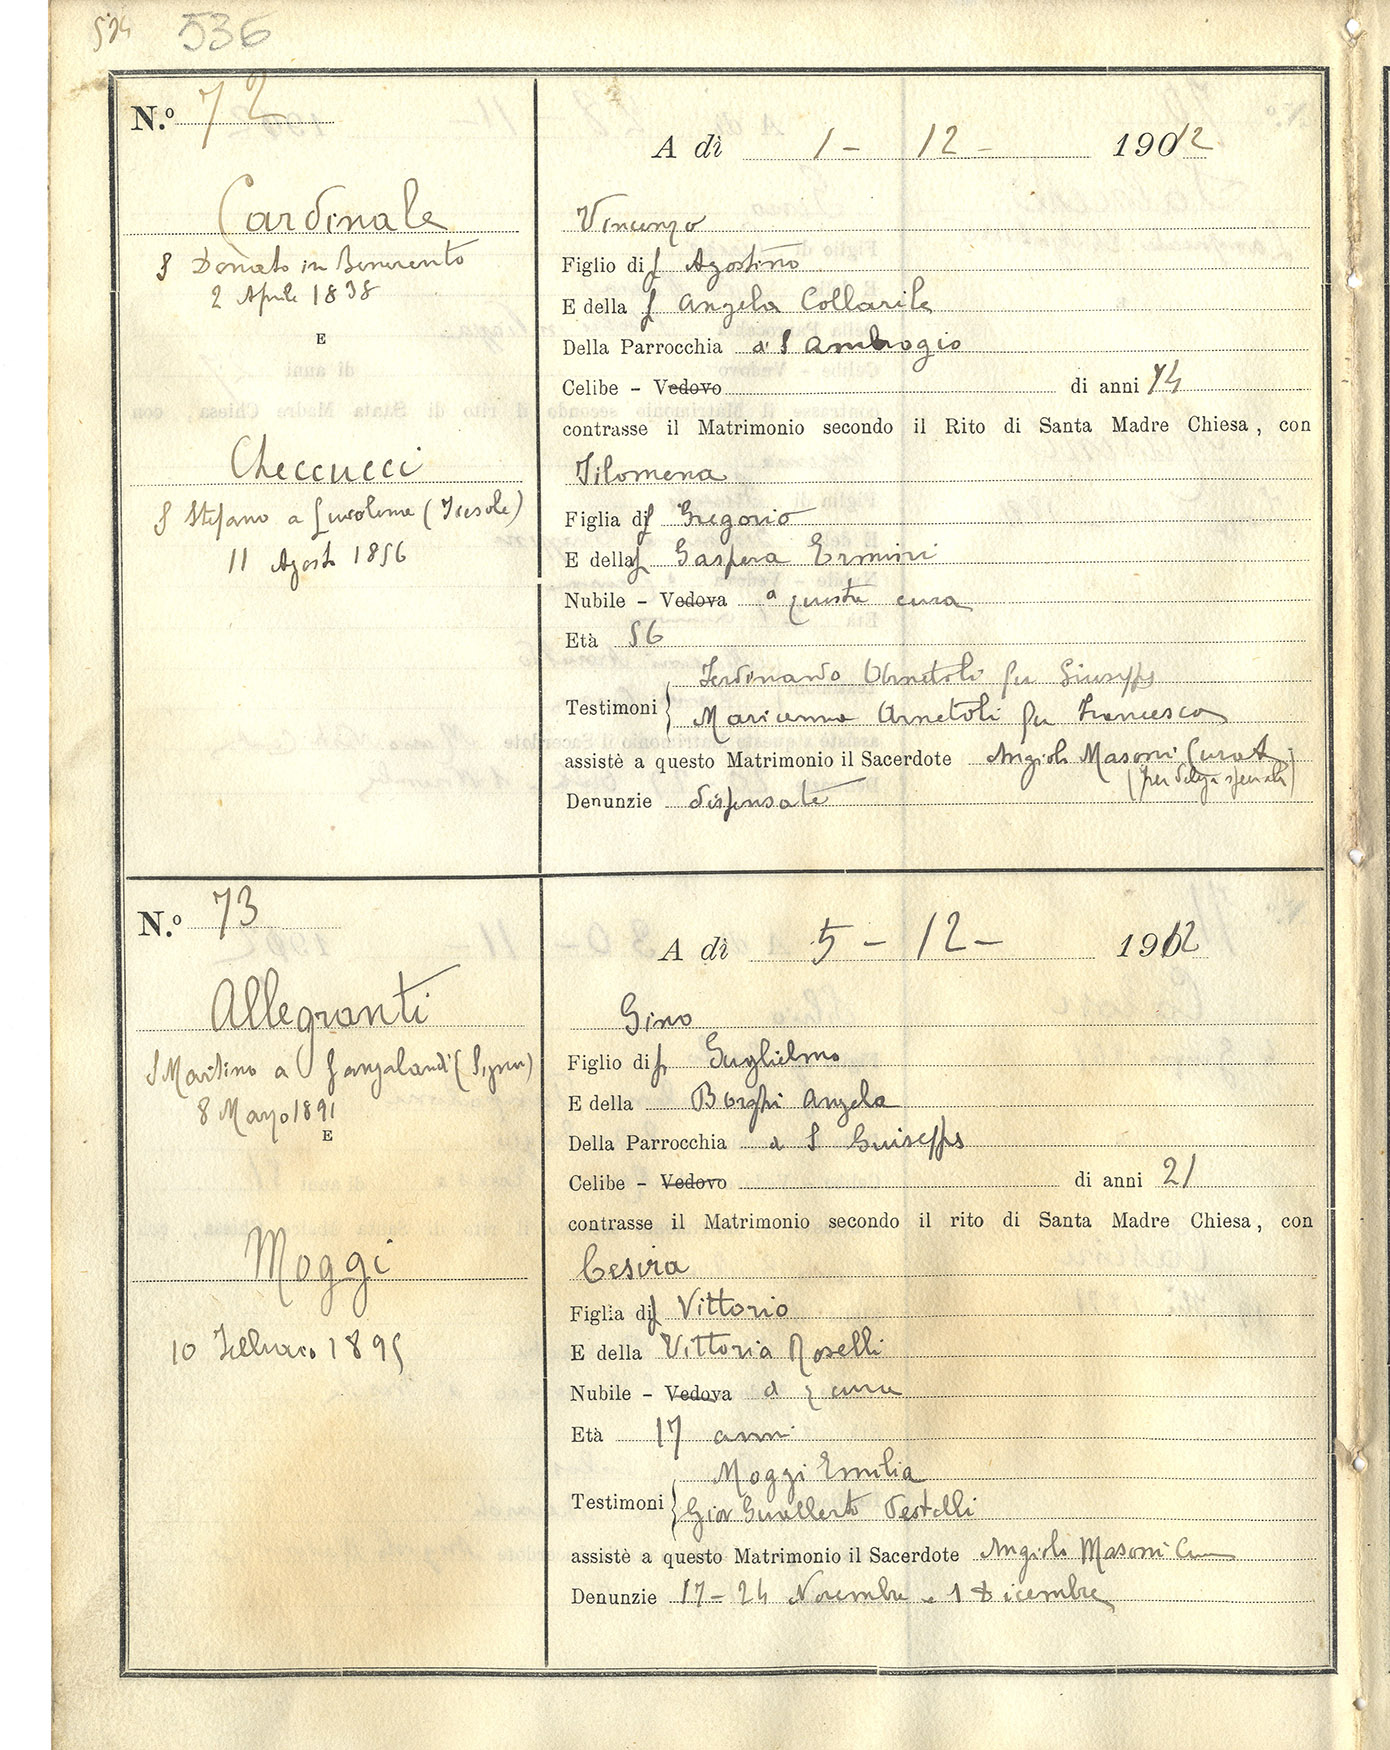 534 536
N.º 72
A dì 1 - 12 - 1912
Cardinale
S Donato in Benevento
2 Aprile 1838
E
Checcucci
S Stefano a (Fiesole)
11 Agosto 1856
Vincenzo
Figlio di f Agostino
E della f Angela Collarile
Della Parrocchia a S Ambrogio
Celibe - Vedovo di anni 74
contrasse il Matrimonio secondo il Rito di Santa Madre Chiesa, con
Filomena
Figlia di f Gregorio
E della f Gaspera Ermini
Nubile - Vedova a questa cura
Età 56
Ferdinando Arnetoli fu Giuseppe
Testimoni
Marianna Arnetoli fu Francesco
assistè a questo Matrimonio il Sacerdote Angiolo Masoni Curato
(per delega speciale)
Denunzie dispensate
N.º 73
A dì 5 - 12 - 1912
Allegranti
S Martino a Gangalandi (Signa)
8 Marzo 1891
E
Moggi
10 Febbraio 1895
Gino
Figlio di f Guglielmo
E della Borghi Angela
Della Parrocchia a S Guiseppe
Celibe - Vedovo di anni 21
contrasse il Matrimonio secondo il rito di Santa Madre Chiesa, con
Cesira
Figlia di f Vittorio
E della Vittoria Roselli
Nubile - Vedova a q cura
Età 17 anni
Moggi Emilia
Testimoni
Giov Gualberto Pestelli
assistè a questo Matrimonio il Sacerdote Angiolo Masoni
Denunzie 17 - 24 Novembre e 1 Dicembre